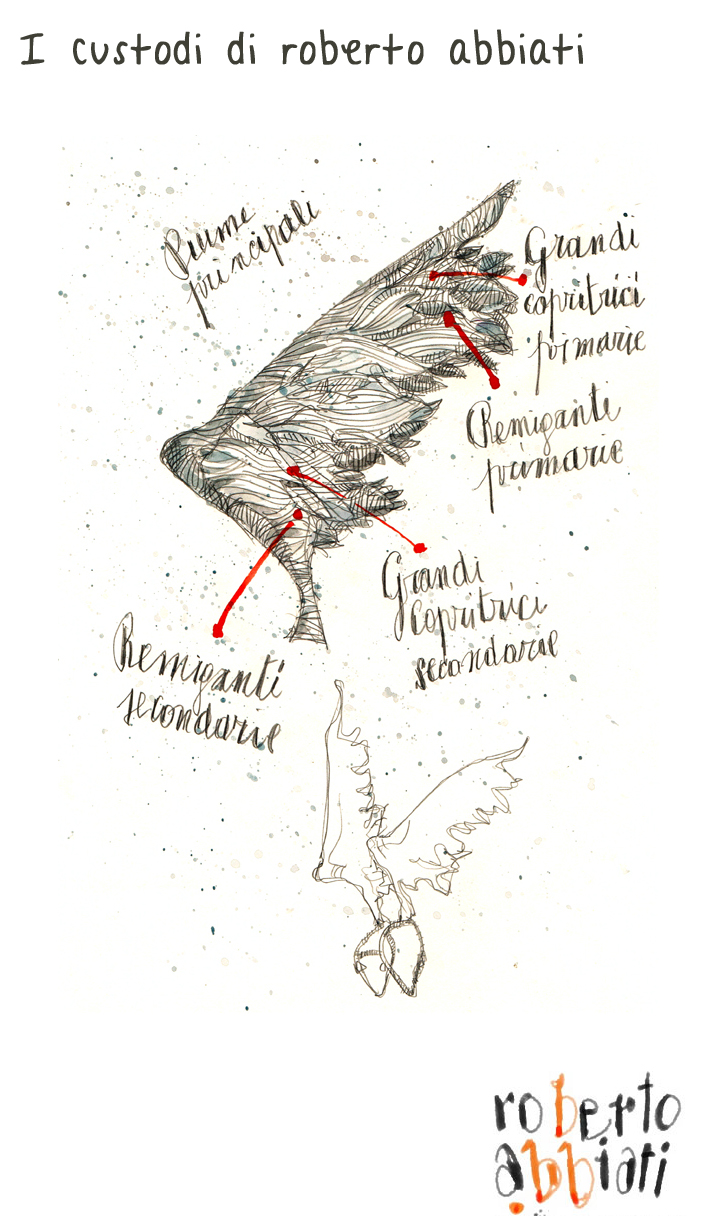 I custodi di roberto abbiati
Piume
principali
Grandi
copritrici
primarie
Remiganti
primarie
Grandi
copritrici
secondarie
Remiganti
secondarie
roberto
abbiati